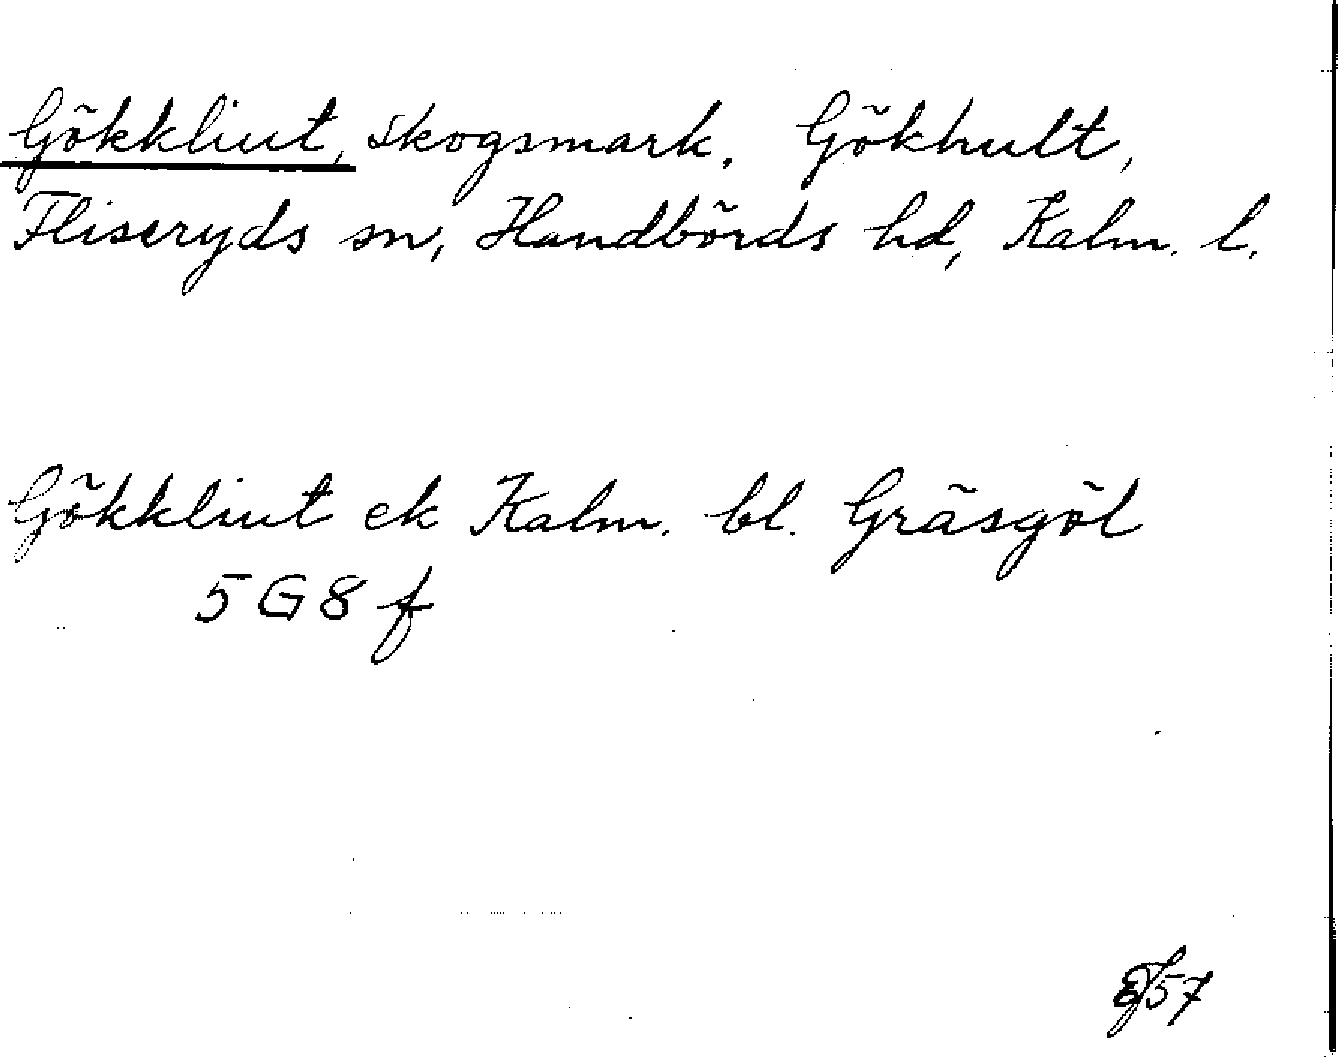 Gökkliut, skogsmark. Gökhult,
Fliseryds sn, Handbörds hd, Kalm. l.
Gökkliut ek Kalm. bl. Gräsgöl
5 G 8 f
57